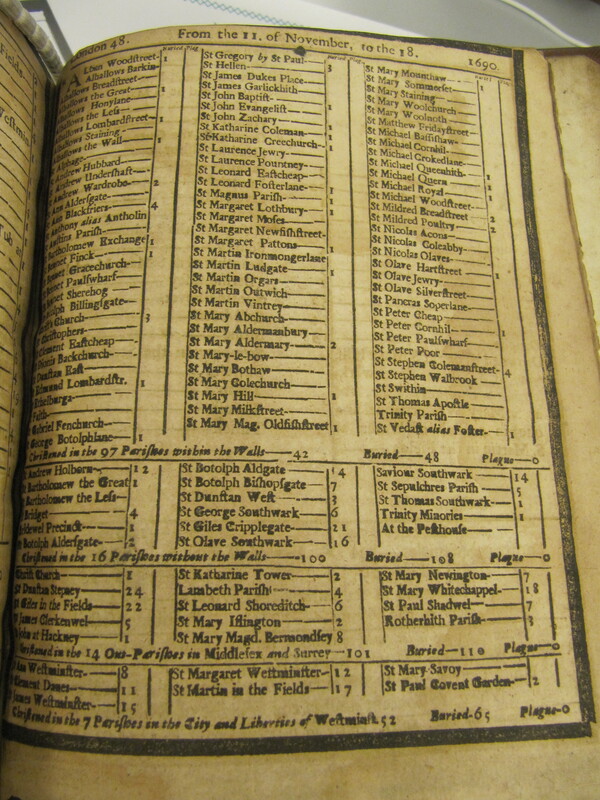 London 48. From the 11. of November, to the 18. 1690.
Buried Plag. Buried Plag. Buried Plag.
ALban Woodstreet 1
Alhallows Barkin
Alhallows Breadstreet
Alhallows the Great 1
Alhallows Honylane
Alhallows the Less
Alhallows Lombardstreet 1
Alhallows Staining
Alhallows the Wall 1
Alphage
St Andrew Hubbard
St Andrew Undershaft
St Andrew Wardrobe 2
Ann Aldersgate
Ann Blackfriers 4
Anthony alias Antholin
Austins Parish
Bartholomew Exchange 1
Bennet Finck 1
Bennet Gracechurch
Bennet Paulswharf
Bennet Sherehog
Botolph Billingsgate
Christ's Church 3
Christophers
Clement Eastcheap
Dionis Backchurch
Dunstan East
Edmund Lombardstr. 1
Ethelburga
Faith
Gabriel Fenchurch
George Botolphlane 1
St Gregory by St Paul
St Hellen 3
St James Dukes Place
St James Garlickhith
St John Baptist
St John Evangelist 1
St John Zachary
St Katharine Coleman 1
St Katharine Creechurch 1
St Laurence Jewry
St Laurence Pountney
St Leonard Eastcheap
St Leonard Fosterlane
St Magnus Parish 1
St Margaret Lothbury 1
St Margaret Moses
St Margaret Newfishstreet
St Margaret Pattons 1
St Martin Ironmongerlane
St Martin Ludgate 1
St Martin Orgars
St Martin Outwich
St Martin Vintrey
St Mary Abchurch
St Mary Aldermanbury
St Mary Aldermary 2
St Mary-le-bow
St Mary Bothaw
St Mary Colechurch
St Mary Hill 1
St Mary Milkstreet
St Mary Mag. Oldfishstreet 1
St Mary Mounthaw
St Mary Sommerset 1
St Mary Staining
St Mary Woolchurch
St Mary Woolnoth
St Matthew Fridaystreet
St Michael Bassishaw
St Michael Cornhil
St Michael Crokedlane
St Michael Queenhith 1
St Michael Quern
St Michael Royal 1
St Michael Woodstreet
St Mildred Breadstreet 2
St Mildred Poultry 2
St Nicolas Acons
St Nicolas Coleabby
St Nicolas Olaves
St Olave Hartstreet 1
St Olave Jewry
St Olave Silverstreet
St Pancras Soperlane
St Peter Cheap
St Peter Cornhil 1
St Peter Paulswharf
St Peter Poor
St Stephen Colemanstreet 4
St Stephen Walbrook
St Swithin
St Thomas Apostle
Trinity Parish
St Vedast alias Foster 1
Christened in the 97 Parishes within the Walls 42 Buried 48 Plague 0
St Andrew Holborn 12
St Bartholomew the Great 1
St Bartholomew the Less
St Bridget 4
Bridewel Precinct 1
St Botolph Aldersgate 2
St Botolph Aldgate 14
St Botolph Bishopsgate 7
St Dunstan West 3
St George Southwark 6
St Giles Cripplegate 21
St Olave Southwark 16
Saviour Southwark 14
St Sepulchres Parish 5
St Thomas Southwark 1
Trinity Minories 1
At the Pesthouse
Christened in the 16 Parishes without the Walls 100 Buried 108 Plague 0
Christ Church 1
St Dunstan Stepney 24
St Giles in the Fields 22
St James Clerkenwel 5
St John at Hackney 1
St Katharine Tower 2
Lambeth Parish 4
St Leonard Shoreditch 6
St Mary Islington 2
St Mary Magd. Bermondsey 8
St Mary Newington 7
St Mary Whitechappel 18
St Paul Shadwel 7
Rotherhith Parish 3
Christened in the 14 Out-Parishes in Middlesex and Surrey 101 Buried 110 Plague 0
Ann Westminster 8
Clement Danes 11
James Westminster 15
St Margaret Westminster 12
St Martin in the Fields 17
St Mary Savoy
St Paul Covent Garden 2
Christened in the 7 Parishes in the City and Liberties of Westminst. 52 Buried 65 Plague 0